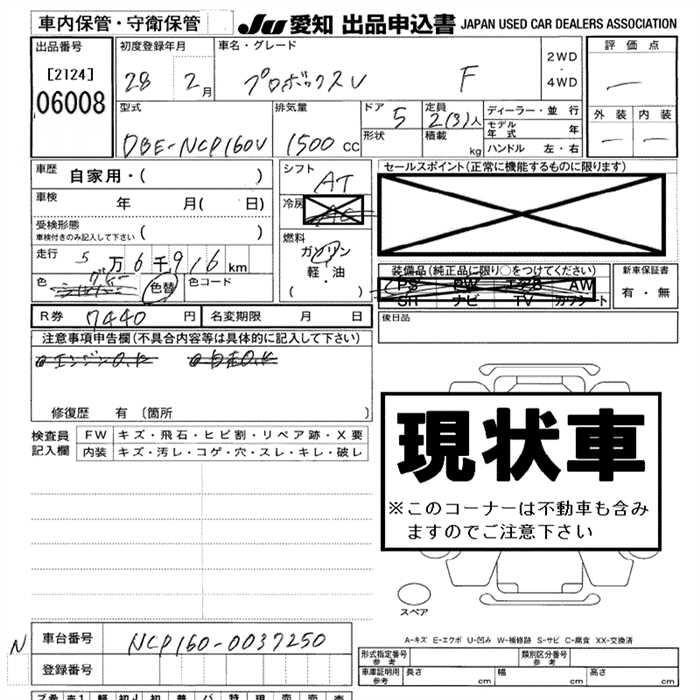 車内保管・守衛保管
JU 愛知 出品申込書 JAPAN USED CAR DEALERS ASSOCIATION
出品番号 初度登録年月 車名・グレード 評価点
[2124]
06008
28 2月 プロボックスV F
2WD
・
4WD
型式 排気量 ドア 定員 ディーラー・並行 外装 内装
DBE-NCP160V 1500cc 5 2(3)人
形状 積載 kg
モデル年式 年
ハンドル 左・右
車歴 自家用・( )
シフト AT
セールスポイント(正常に機能するものに限ります)
車検 年 月( 日)
冷房 AC
受検形態
車検付きのみ記入して下さい ( )
燃料
ガソリン
軽・油
( )
走行 5万6千916km
装備品(純正品に限り○をつけてください) 新車保証書
PS PW エアB AW
SH ナビ TV カワシート
有・無
色 色替 色コード
R券 7440円 名変期限 月 日
後日品
注意事項申告欄(不具合内容等は具体的に記入して下さい)
修復歴 有 〔箇所 〕
現状車
※このコーナーは不動車も含み
ますのでご注意下さい
検査員記入欄 FW キズ・飛石・ヒビ割・リペア跡・X要
内装 キズ・汚レ・コゲ・穴・スレ・キレ・破レ
スペア
A-キズ E-エクボ U-凹み W-補修跡 S-サビ C-腐食 XX-交換済
N 車台番号 NCP160-0037250
登録番号
形式指定番号 参考 類別区分番号 参考
車庫証明用 参考 長さ cm 幅 cm 高さ cm